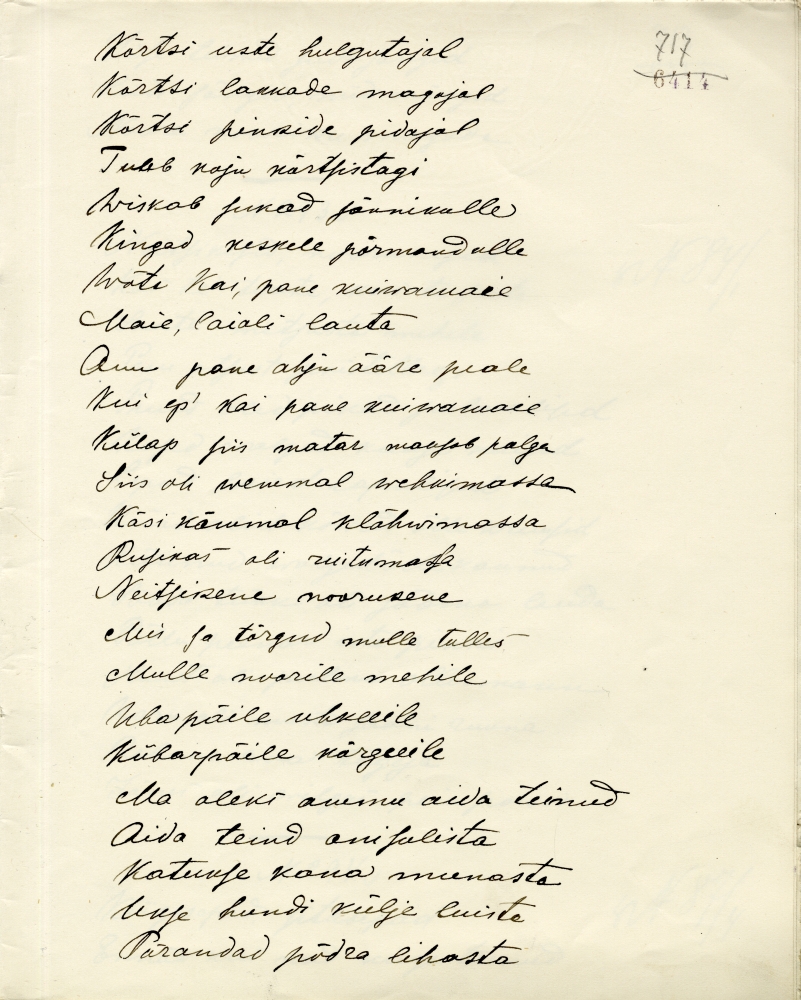 717
6414
Kõrtsi uste hulgutajal
Kõrtsi lakkade magajal
Kõrtsi pinkide pidajal
Tuleb koju kõrtsistagi
Wiskab sukad sännikulle
Kingad keskele põrmandulle
Wõta Kai, pane kuiwamaie
Maie, laiali lauta
Anu pane ahju ääre peale
Kui ep' Kai pane kuiwamaie
Külap siis matar maksab palga
Siis oli wemmal wehkimassa
Käsi kämmal klähwimassa
Rusikas oli ruitumassa
Neitsikene noorukene
Mis sa tõrgud mulle tulles
Mulle noorile mehile
Uba päile uhkeeile
Kübarpäile kõrgeeile
Ma oleks ammu aida teinud
Aida teind anisalista
Katukse kana munasta
Ukse hundi külje luista
Põrandad põdra lihasta